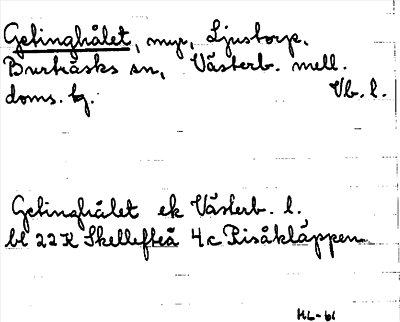 Getinghålet, myr, Ljustorp,
Burträsks sn, Västerb. mell.
doms. tg. Vb. l.
Getinghålet ek Västerb. l.
bl 22 K Skellefteå 4 c Risåkläppen
HL-61